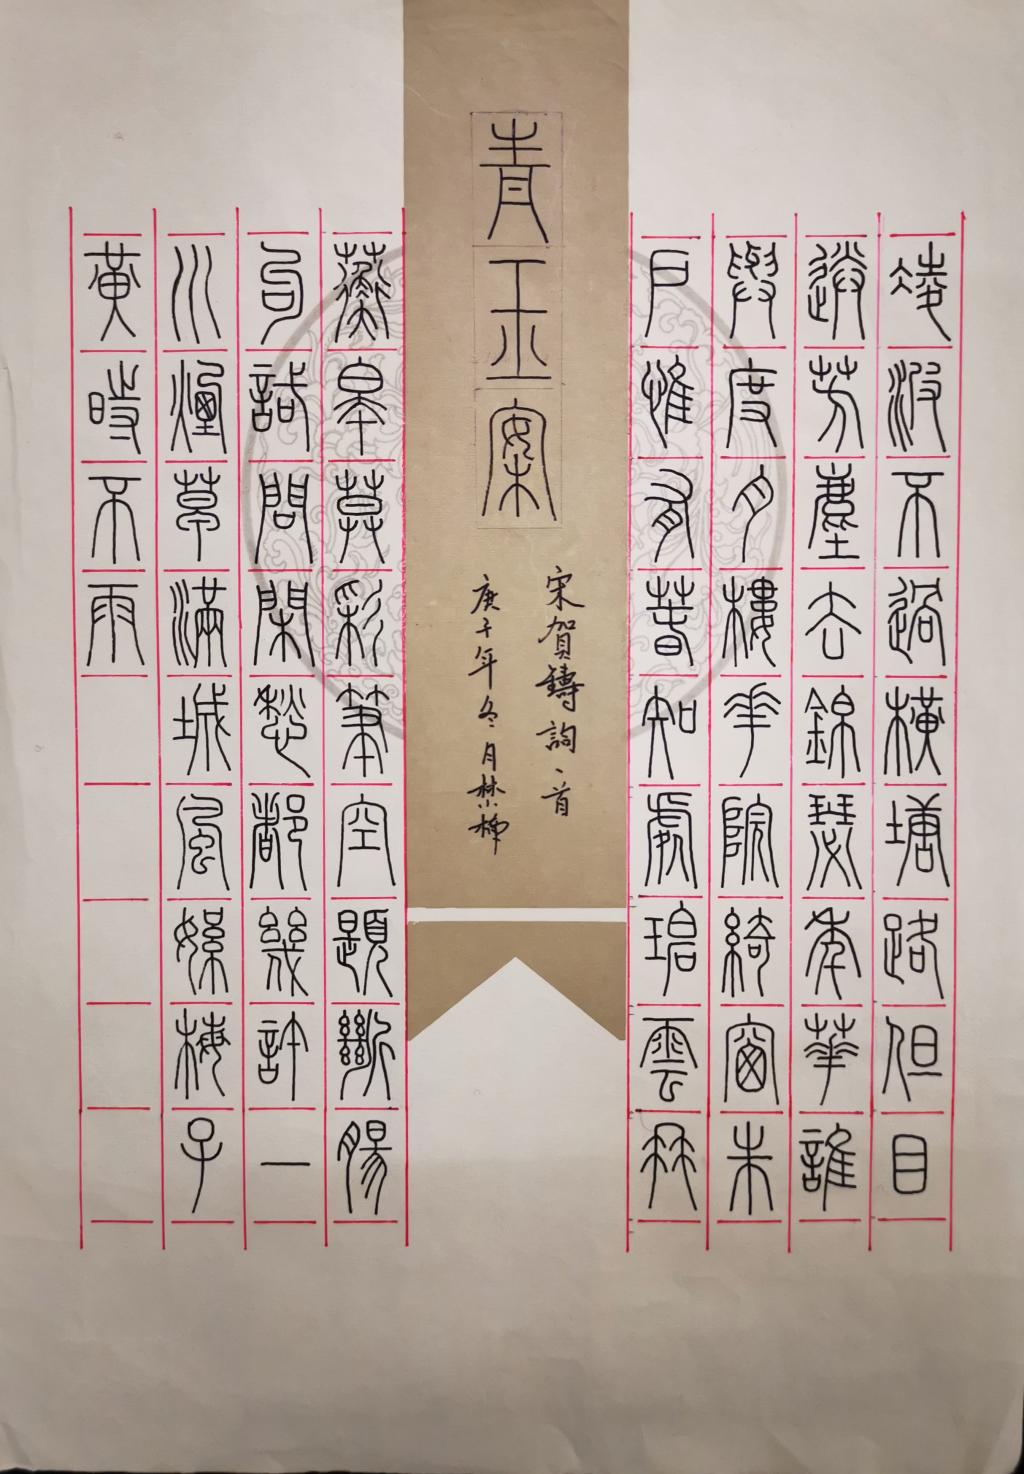 青玉案
凌波不過橫塘路但目
送芳塵去錦瑟年華誰
與度月樓花院綺窗朱
戶惟有春知處碧雲冉冉
蘅皋莫彩筆空題斷腸
句試問閑愁都幾許一
川煙草滿城風絮梅子
黃時不雨
宋賀鑄詞一首
庚子年冬月